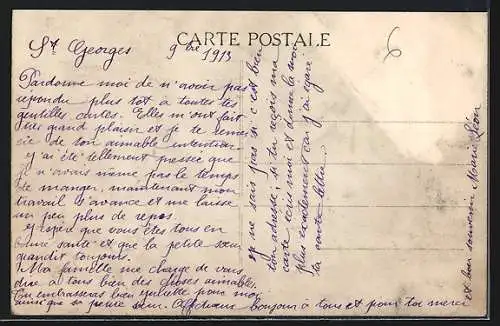 CARTE POSTALE
6
St Georges 9bre 1913
Pardonne moi de n'avoir pas
repondu plus tôt à toutes tes
gentilles cartes. Elles m'ont fait
très grand plaisir et je te remer
cie de ton aimable intention
J'ai été tellement pressée que
je n'avais même pas le temps
de manger, maintenant mon
travail s'avance et me laisse
un peu plus de repos.
J'espère que vous êtes tous en
bonne santé et que la petite sœur
grandit toujours.
Ma famille me charge de vous
dire à tous bien des choses aimables.
Tu embrasseras bien Juliette pour moi
ainsi que sa petite sœur. Affectueux bonjour à tous et pour toi merci
et bon souvenir Marie Léon
Je ne sais pas si c'est bien
ton adresse; si tu reçois ma
carte ecris moi et donne la moi
plus exactement car j'ai égaré
ta carte lettre